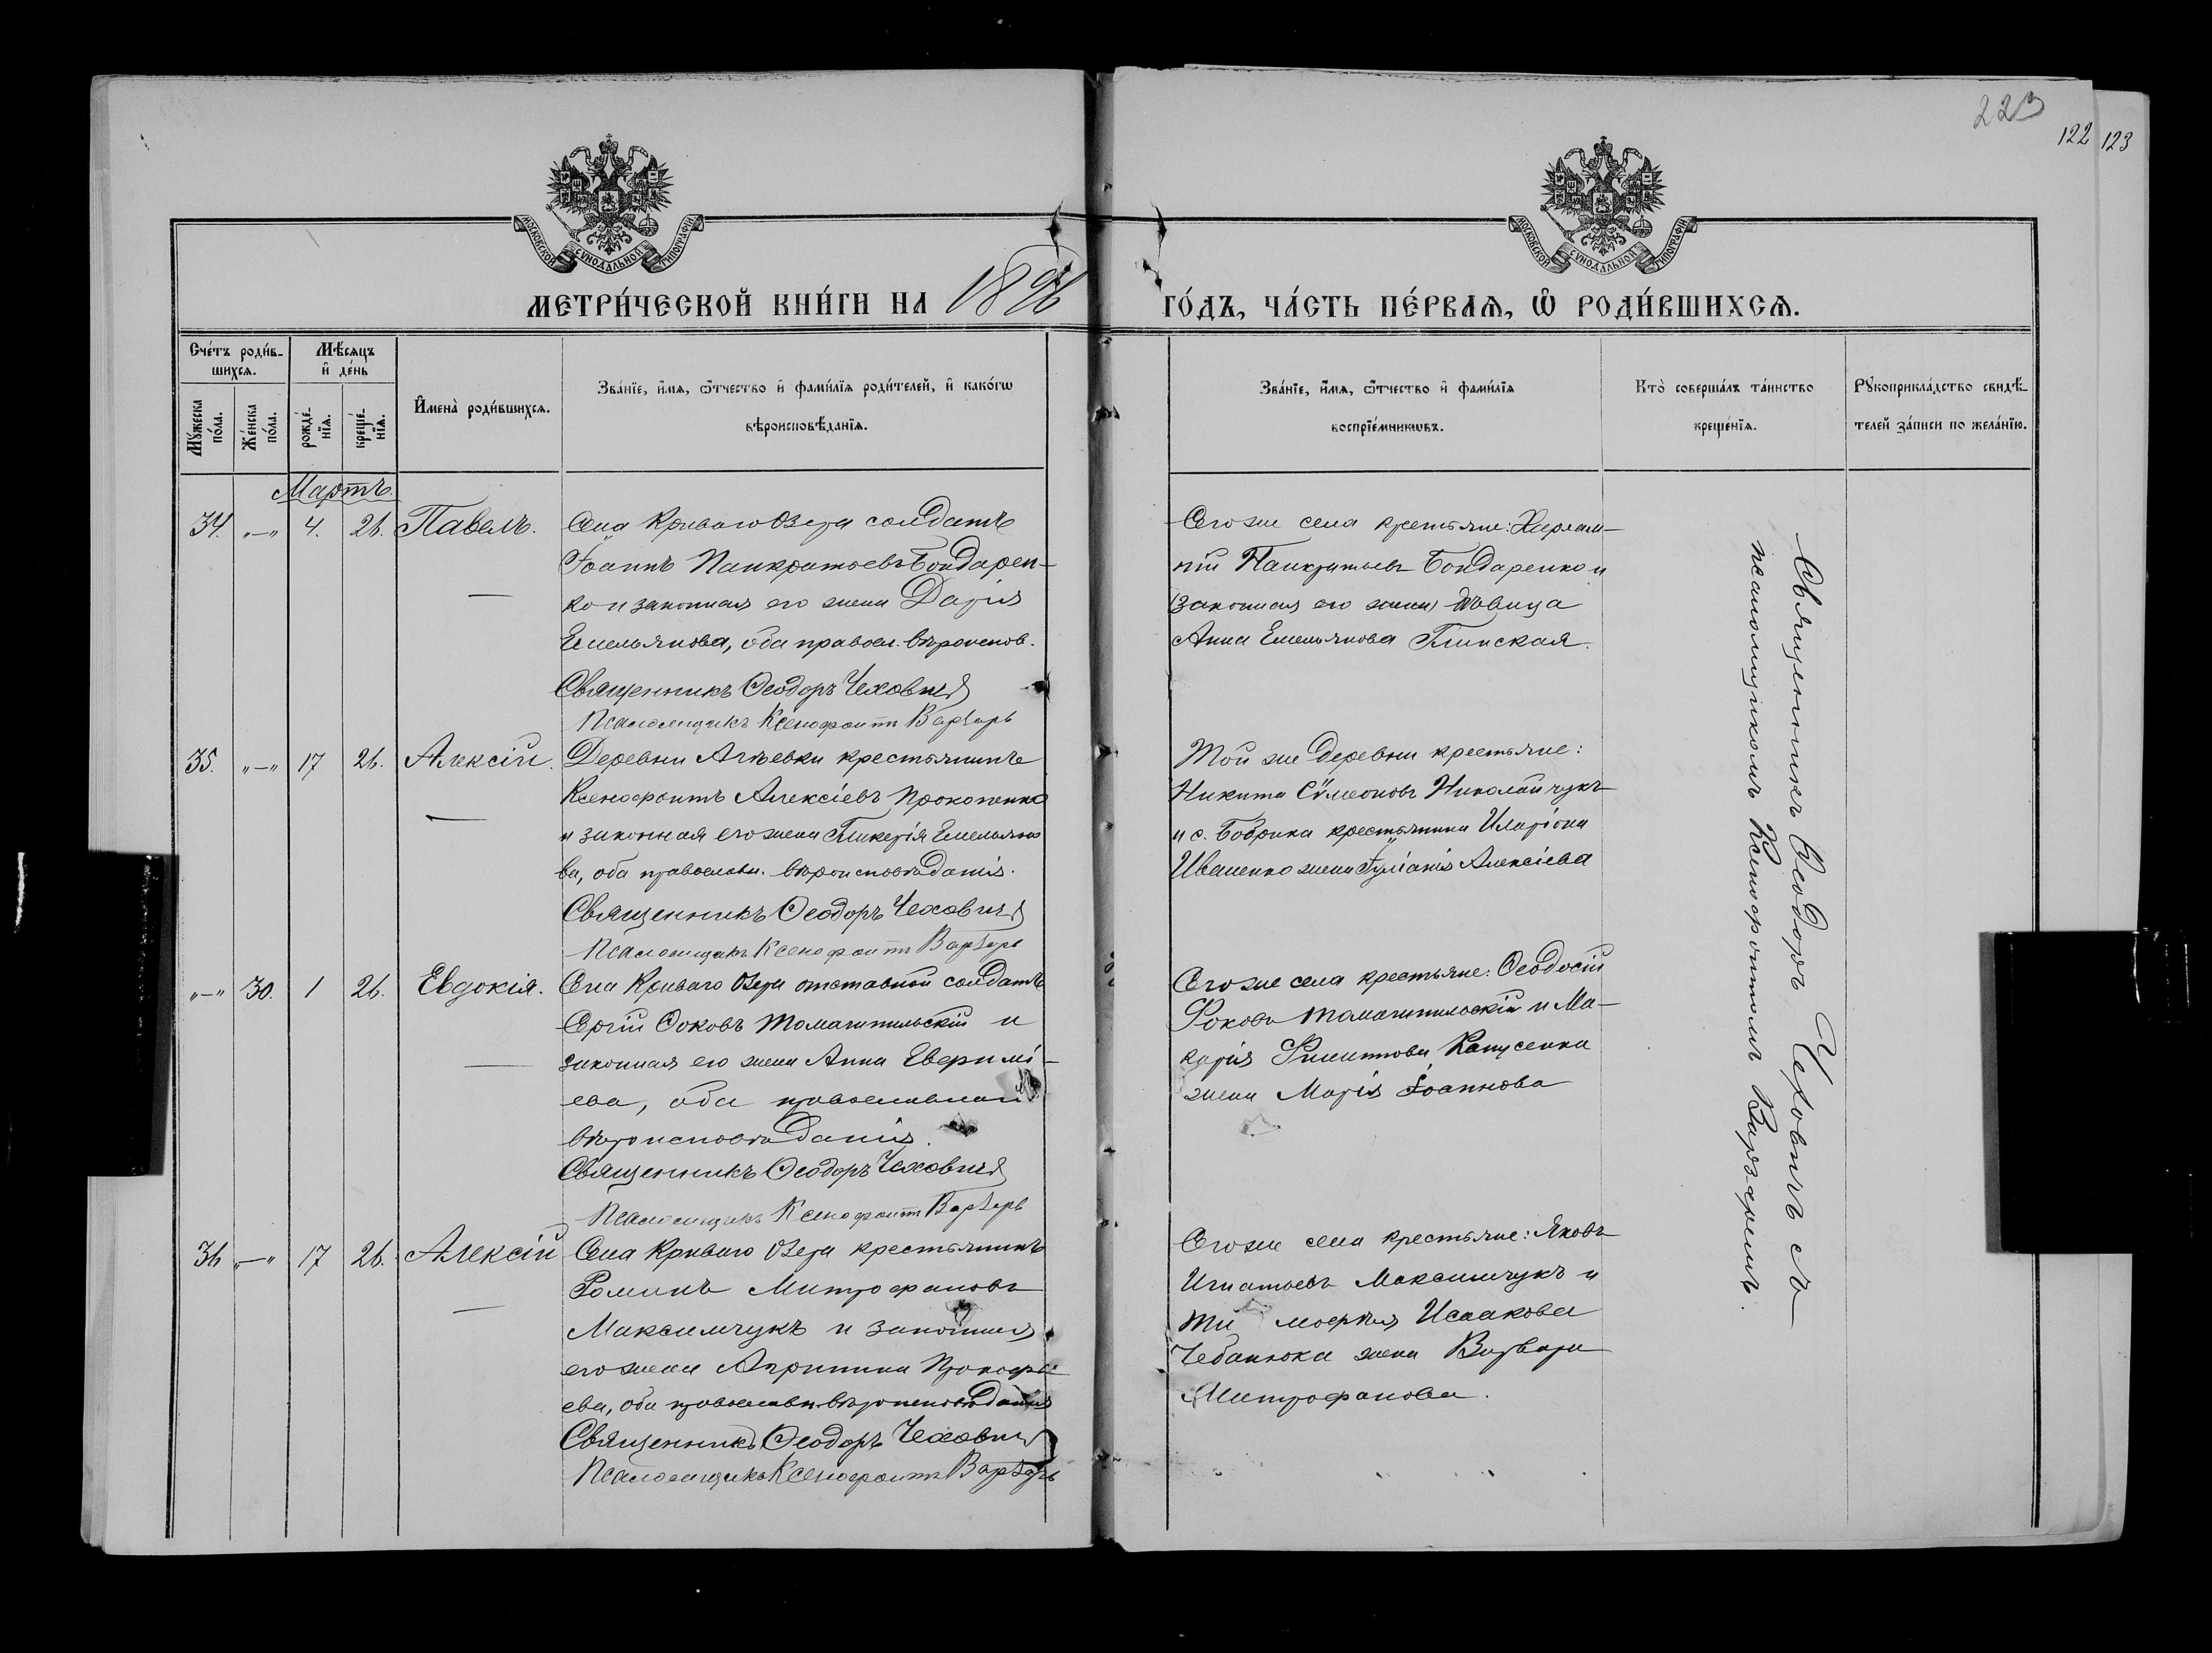 223
122 123
МОСКОВСКОЙ СѴНОДАЛЬНОЙ ТИПОГРАФІИ
МОСКОВСКОЙ СѴНОДАЛЬНОЙ ТИПОГРАФІИ
МЕТРИ́ЧЕСКОЙ КНИ́ГИ НА 1896 ГО́ДЪ, ЧА́СТЬ ПЕ́РВАѦ, Ѡ҆ РОДИ́ВШИХСѦ.
Сче́тъ роди́в-
шихсѧ.
Мꙋ́жеска по́ла.
Же́нска по́ла.
Мѣ́сѧцъ и҆ де́нь
рожде́-нїѧ.
креще́-нїѧ.
И҆мена̀ роди́вшихсѧ.
Зва́нїе, и҆́мѧ, ѻ҆́тчество и҆ фами́лїѧ роди́телей, и҆ како́гѡ
вѣроисповѣ́данїѧ.
Зва́нїе, и҆́мѧ, ѻ҆́тчество и҆ фами́лїѧ
воспрїе́мникѡвъ.
Кто̀ соверша́лъ та́инство
креще́нїѧ.
Рꙋкоприкла́дство свидѣ́-
телей за́писи по жела́нїю.
Мартъ.
34. "—" 4. 26. Павелъ.
Села Криваго Озера солдатъ
Іоаннъ Панкратьевъ Бондарен-
ко и законная его жена Дарія
Емельянова, оба правосл. вѣроиспов.
Священникъ Ѳеодоръ Чеховичъ
Псаломщикъ Ксенофонтъ Варзарь
Того же села крестьяне: Харлам-
пій Панкратьевъ Бондаренко и
(законная его жена) дѣвица
Анна Емельянова Глинская.
35. "—" 17 26. Алексій.
Деревни Агѣевки крестьянинъ
Ксенофонтъ Алексіевъ Прокопенко
и законная его жена Гликерія Емельяно
ва, оба православн. вѣроисповѣданія.
Священникъ Ѳеодоръ Чеховичъ
Псаломщикъ Ксенофонтъ Варзарь
Той же деревни крестьяне:
Никита Сѵмеоновъ Николайчукъ
и с. Бобрика крестьянина Иларіона
Иваненко жена Іуліанія Алексіева
"—" 30. 1 26. Евдокія.
Села Криваго Озера отставной солдатъ
Сергій Ѳоковъ Томашпильскій и
законная его жена Анна Евѳимі-
ева, оба православнаго
вѣроисповѣданія.
Священникъ Ѳеодоръ Чеховичъ
Псаломщикъ Ксенофонтъ Варзарь
Того же села крестьяне: Ѳеодосій
Фоковъ Томашпильскій и Ма-
карія Филиппова Капусенка
жена Марія Іоаннова
36 "—" 17 26. Алексій
Села Криваго Озера крестьянинъ
Романъ Митрофановъ
Максимчукъ и законная
его жена Агрипина Прокофь
ева, оба православн. вѣроисповѣданія
Священникъ Ѳеодоръ Чеховичъ
Псаломщикъ Ксенофонтъ Варзарь
Того же села крестьяне: Яковъ
Игнатьевъ Максимчукъ и
Тимоѳея Исаакова
Чебанюка жена Варвара
Митрофанова.
Священникъ Ѳеодоръ Чеховичъ съ
псаломщикомъ Ксенофонтомъ Варзаремъ.